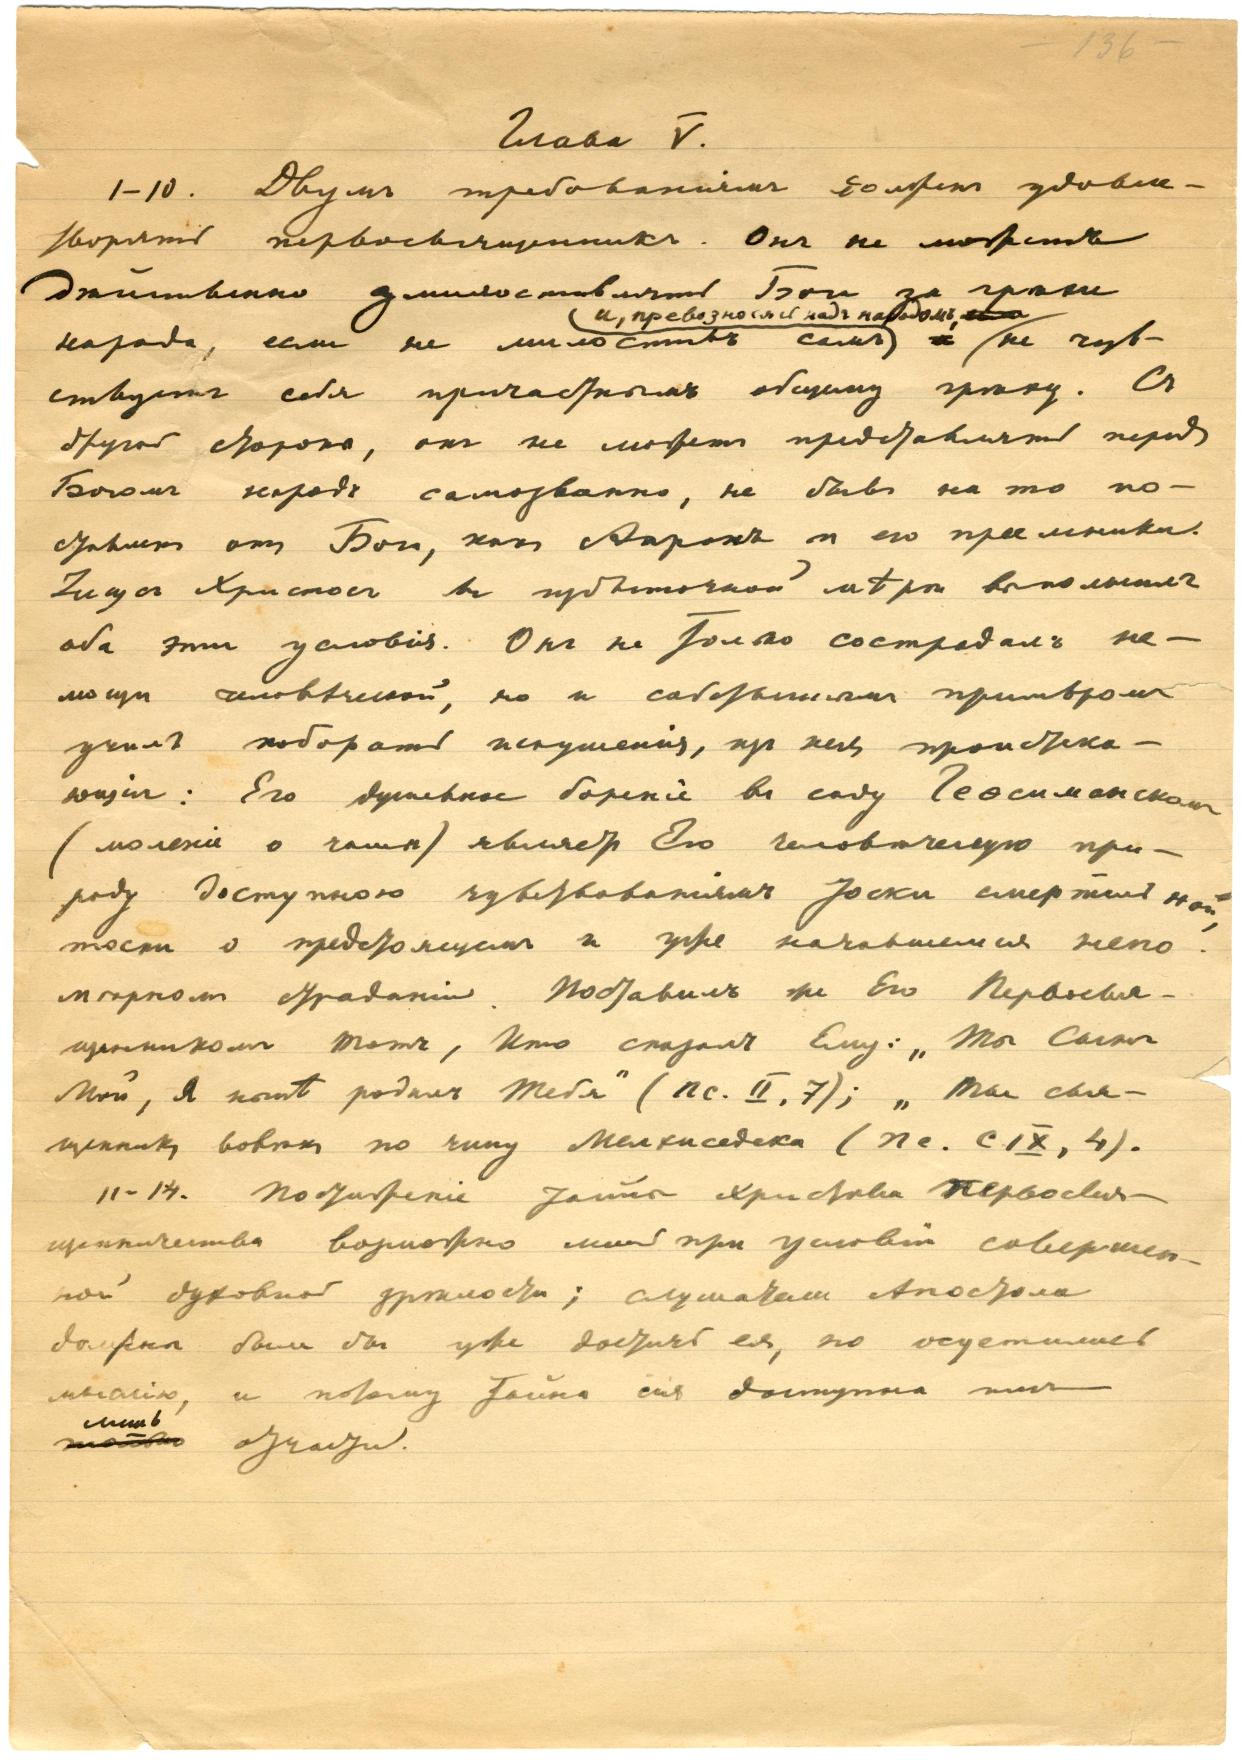 — 136 —
Глава V.
1–10. Двумъ требованіямъ долженъ удовле-
творять первосвященникъ. Онъ не можетъ
дѣйственно умилостивлять Бога за грѣхи
и, превозносясь надъ народомъ,
народа, если не милостивъ самъ не чув-
ствуетъ себя причастнымъ общему грѣху. Съ
другой стороны, онъ не можетъ представлять передъ
Богомъ народъ самозванно, не бывъ на то по-
ставленъ отъ Бога, какъ Ааронъ и его преемники.
Іисусъ Христосъ въ избыточной мѣрѣ выполнилъ
оба эти условія. Онъ не только сострадалъ не-
мощи человѣческой, но и собственнымъ примѣромъ
училъ побораты искушенія, изъ нея проистека-
ющія: Его душевное бореніе въ саду Геѳсиманскомъ
(моленіе о чашѣ) являетъ Его человѣческую при-
роду доступною чувствованіямъ тоски смертельной,
тоски о предстоящемъ и уже начавшемся непо-
мѣрномъ страданіи. Поставилъ же Его Первосвя-
щенникомъ Тотъ, Кто сказалъ Ему: „Ты Сынъ
Мой, Я нынѣ родилъ Тебя" (Пс. II, 7); „Ты свя-
щенникъ вовѣкъ по чину Мелхиседека (Пс. CIX, 4).
11–14. Постиженіе тайны Христова Первосвя-
щенничества возможно лишь при условіи совершен-
ной духовной зрѣлости; слушатели Апостола
должны были бы уже достичь ея, но осуетились
мыслію, и потому тайна сія доступна имъ
лишь
только отчасти.